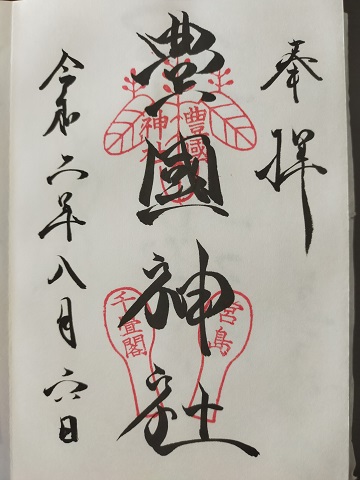 奉拝
豊國神社
豊國
神社
宮島
千畳閣
令和六年八月六日